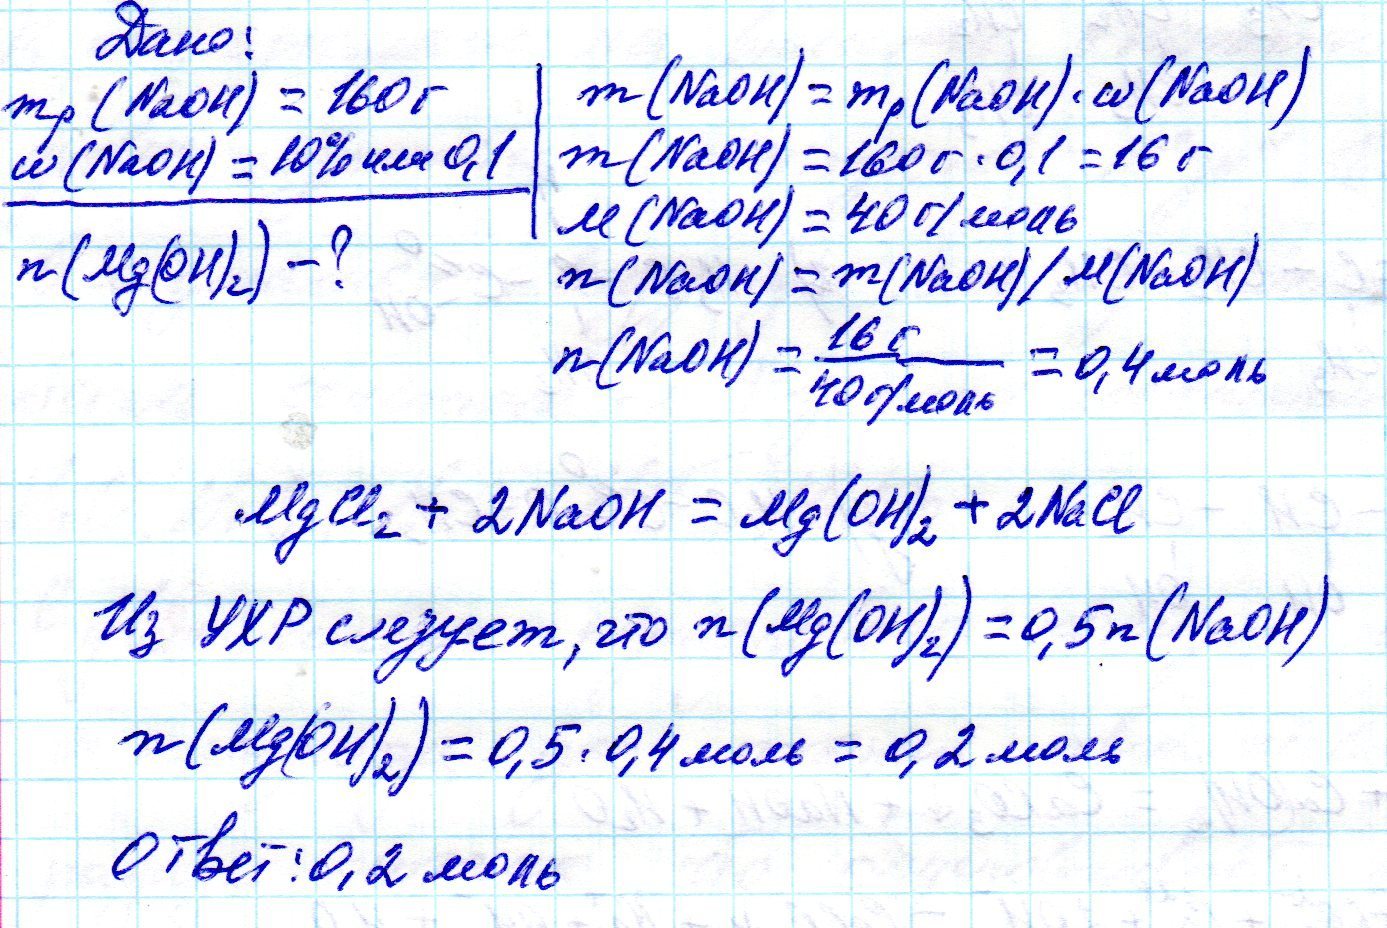 Дано:
mр(NaOH) = 160г
w(NaOH) = 10% или 0,1
n(Mg(OH)₂) - ?
m(NaOH) = mр(NaOH)·w(NaOH)
m(NaOH) = 160г·0,1 = 16г
M(NaOH) = 40г/моль
n(NaOH) = m(NaOH)/M(NaOH)
n(NaOH) = 16г/40г/моль = 0,4моль
MgCl₂ + 2NaOH = Mg(OH)₂ + 2NaCl
Из УХР следует, что n(Mg(OH)₂) = 0,5n(NaOH)
n(Mg(OH)₂) = 0,5·0,4моль = 0,2моль
Ответ: 0,2моль